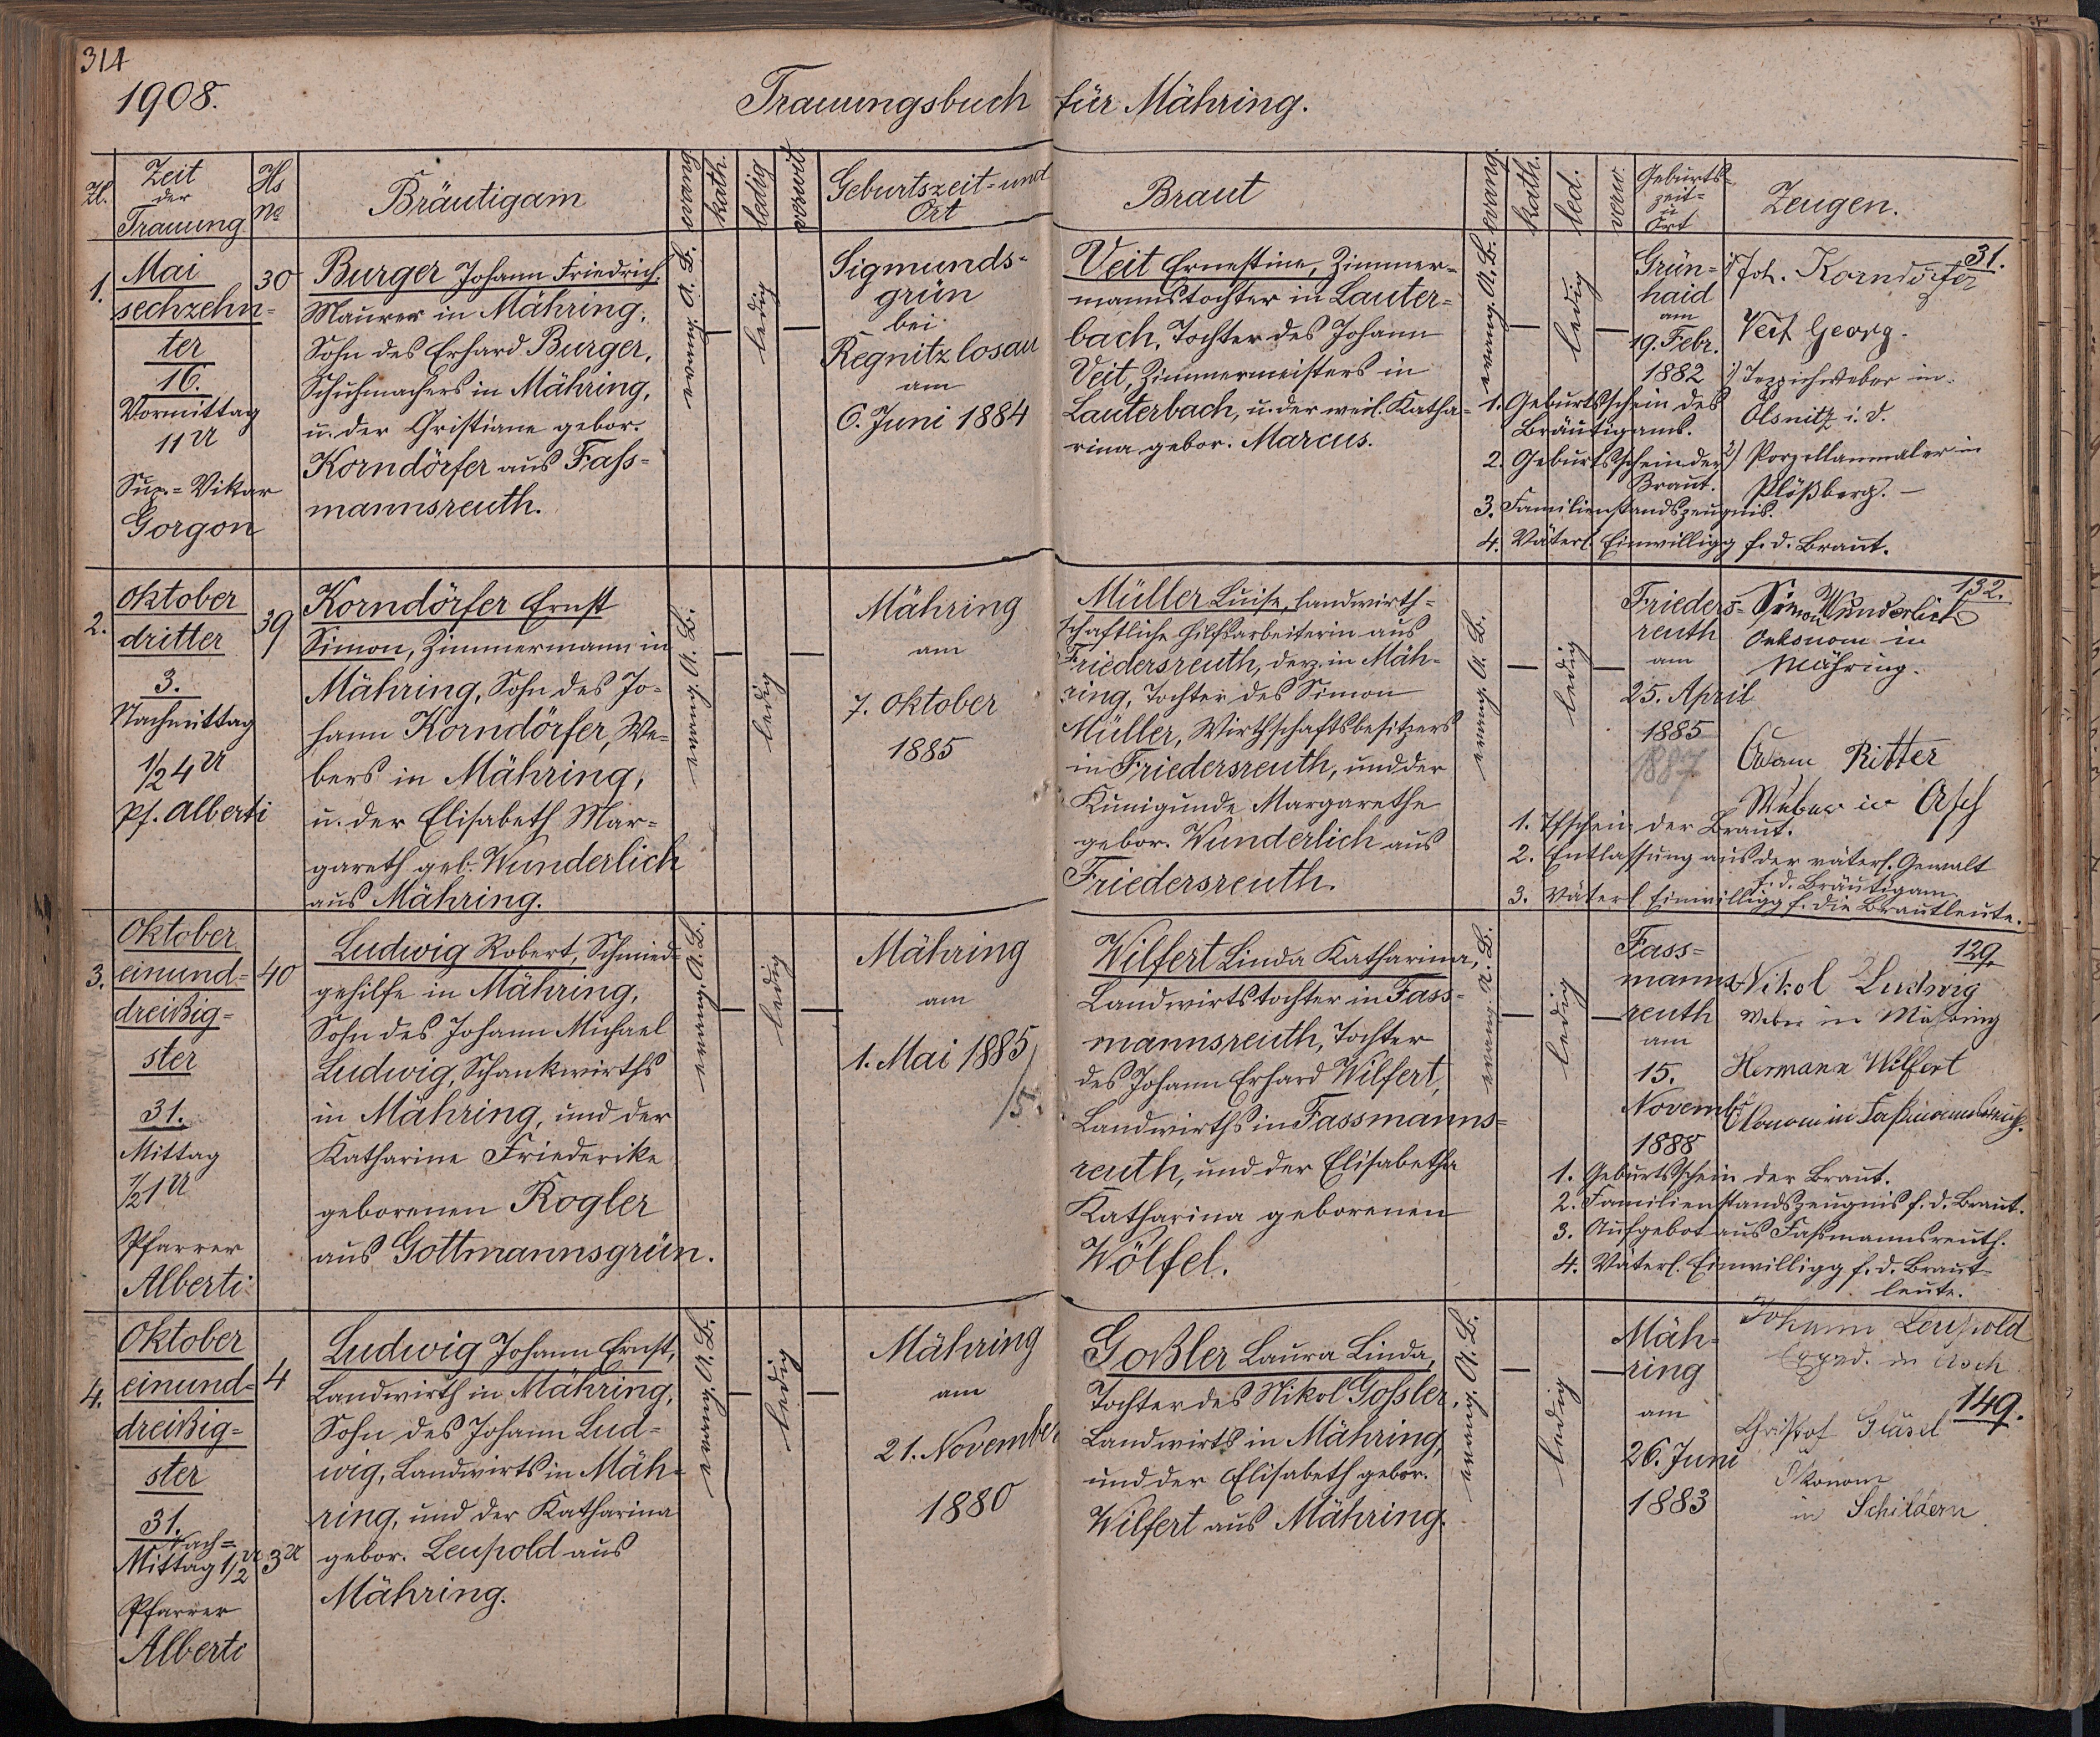 314
1908.
Trauungsbuch für Mähring.
Zl.
Zeit
der
Trauung
Hs
No
Bräutigam
evang.
kath.
ledig
verwit.
Geburtszeit- und
Ort
Braut
evang.
kath.
led.
verw.
Geburts-
zeit-
u
Ort
Zeugen.
1.
Mai
sechzehn-
ter
16.
Vormittag
11 U
Sup.-Vikar
Gorgon
30
Burger Johann Friedrich,
Maurer in Mähring,
Sohn des Erhard Burger,
Schuhmachers in Mähring,
u. der Christiane gebor.
Korndörfer aus Fass-
mannsreuth.
evang. A. B.
ledig
Sigmunds-
grün
bei
Regnitzlosau
am
6. Juni 1884
Veit Ernestine, Zimmer-
mannstochter in Lauter-
bach, Tochter des Johann
Veit, Zimmermeisters in
Lauterbach, u. der weil. Katha-
rina gebor. Marcus.
evang. A. B.
ledig
Grün-
haid
am
19. Febr.
1882
31.
1) Joh. Korndörfer
Veit Georg.
1) Teppichweber in
Ölsnitz i. V.
2) Porzellanmaler in
Plößberg. —
1. Geburtsschein des
Bräutigams.
2. Geburtsschein der
Braut.
3. Familienstandszeugnis.
4. Väterl. Einwilligg f. d. Braut.
2.
Oktober
dritter
3.
Nachmittag
1/2 4 U
Pf. Alberti
39
Korndörfer Ernst
Simon, Zimmermann in
Mähring, Sohn des Jo-
hann Korndörfer, We-
bers in Mähring,
u. der Elisabeth Mar-
gareth geb. Wunderlich
aus Mähring.
evang. A. B.
ledig
Mähring
am
7. Oktober
1885
Müller Luise, landwirth-
schaftliche Hilfsarbeiterin aus
Friedersreuth, derz. in Mäh-
ring, Tochter des Simon
Müller, Wirthschaftsbesitzers
in Friedersreuth, und der
Kunigunde Margarethe
gebor. Wunderlich aus
Friedersreuth.
evang. A. B.
ledig
Frieders-
reuth
am
25. April
1885
887
132.
Simon Wunderlich
Oekonom in
Mähring.
Adam Ritter
Weber in Asch
1. Tfschein der Braut.
2. Entlassung aus der väterl. Gewalt
f. d. Bräutigam
3. Väterl. Einwilligg f. die Brautleute.
3.
Oktober
einund-
dreißig-
ster
31.
Mittag
1/2 1 U
Pfarrer
Alberti
40
Ludwig Robert, Schmied-
gehilfe in Mähring,
Sohn des Johann Michael
Ludwig, Schankwirths
in Mähring, und der
Katharine Friederike
geborenen Rogler
aus Gottmannsgrün.
evang. A. B.
ledig
Mähring
am
1. Mai 1885
/5.
Wilfert Linda Katharina,
Landwirtstochter in Fass-
mannsreuth, Tochter
des Johann Erhard Wilfert,
Landwirths in Fassmanns-
reuth, und der Elisabetha
Katharina geborenen
Wölfel.
evang. A. B.
ledig
Fass-
manns-
reuth
am
15.
Novemb.
1888
129.
Nikol Ludwig
Weber in Mähring
Hermann Wilfert
Ökonom in Faßmannsreuth.
1. Geburtsschein der Braut.
2. Familienstandszeugnis f. d. Braut.
3. Aufgebot aus Fassmannsreuth.
4. Väterl. Einwilligg f. d. Braut-
leute.
4.
Oktober
einund-
dreißig-
ster
31.
Nach-
Mittag 1/2 3 U
Pfarrer
Alberti
4
Ludwig Johann Ernst,
Landwirth in Mähring,
Sohn des Johann Lud-
wig, Landwirts in Mäh-
ring, und der Katharina
gebor. Leupold aus
Mähring.
evang. A. B.
ledig
Mähring
am
21. November
1880
Goßler Laura Linda,
Tochter des Nikol Gossler,
Landwirts in Mähring,
und der Elisabeth gebor.
Wilfert aus Mähring.
evang. A. B.
ledig
Mäh-
ring
am
26. Juni
1883
Johann Leupold
Exped. in Asch
149.
Christof Gläsel
Ökonom
in Schildern